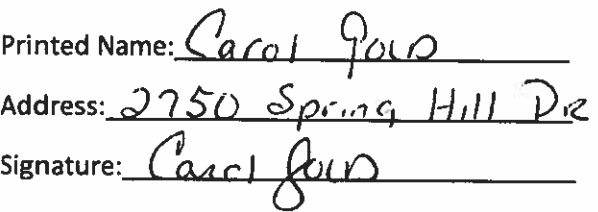 Printed Name: Carol Gold
Address: 2750 Spring Hill Dr
Signature: Carol Gold